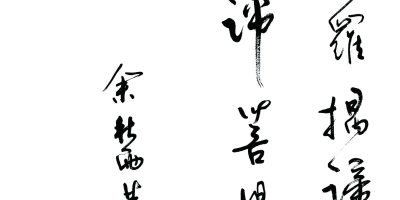 羅揭諦
諦菩
余秋雨